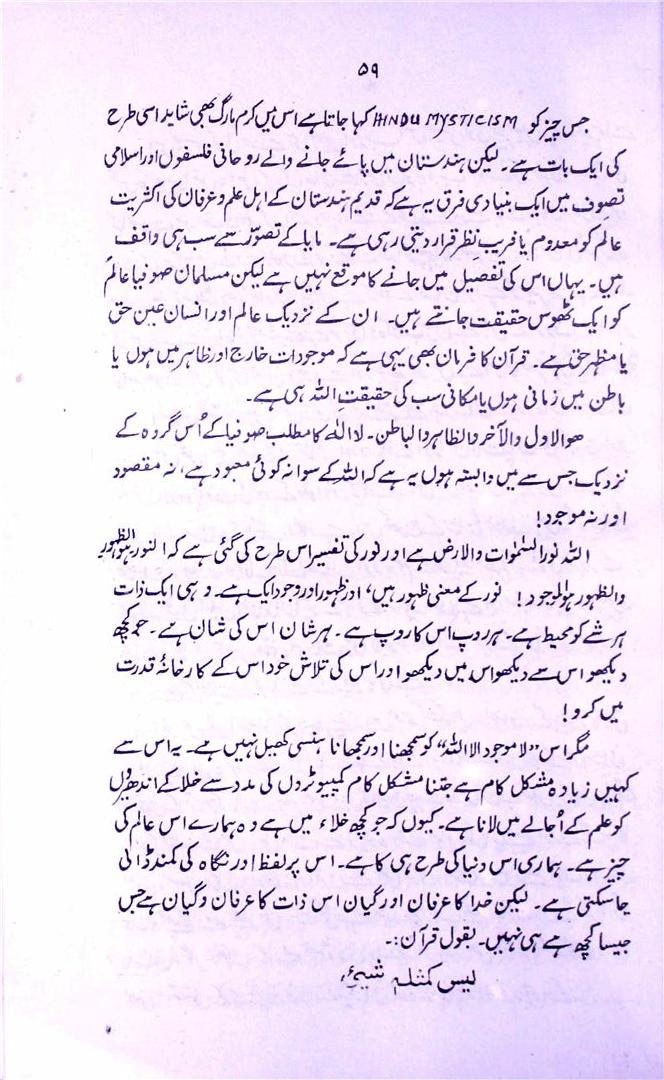 ۵۹
جس چیز کو HINDU MYSTICISM کہا جاتا ہے اس میں کرم مارگ بھی شاید اسی طرح
کی ایک بات ہے۔ لیکن ہندستان میں پائے جانے والے روحانی فلسفوں اور اسلامی
تصوف میں ایک بنیادی فرق یہ ہے کہ قدیم ہندستان کے اہل علم و عرفان کی اکثریت
عالم کو معدوم یا فریب نظر قرار دیتی رہی ہے۔ مایا کے تصوّر سے سب ہی واقف
ہیں۔ یہاں اس کی تفصیل میں جانے کا موقع نہیں ہے لیکن مسلمان صوفیا عالم
کو ایک ٹھوس حقیقت جانتے ہیں۔ ان کے نزدیک عالم اور انسان عین حق
یا مظہر حق ہے۔ قرآن کا فرمان بھی یہی ہے کہ موجودات خارج اور ظاہر میں ہوں یا
باطن میں زمانی ہوں یا مکانی سب کی حقیقت اللہ ہی ہے۔
ھو الاول والآخر والظاہر والباطن۔ لا الٰہ کا مطلب صوفیا کے اُس گروہ کے
نزدیک جس سے میں وابستہ ہوں یہ ہے کہ اللہ کے سوا نہ کوئی معبود ہے، نہ مقصود
اور نہ موجود!
اللہ نور السمٰوات والارض ہے اور نور کی تفسیر اس طرح کی گئی ہے کہ النور ہو الظہور
والظہور ہو الوجود! نور کے معنی ظہور ہیں، اور ظہور اور وجود ایک ہے۔ وہی ایک ذات
ہر شے کو محیط ہے۔ ہر روپ اس کا روپ ہے۔ ہر شان اس کی شان ہے۔ جو کچھ
دیکھو اس سے دیکھو اس میں دیکھو اور اس کی تلاش خود اس کے کارخانۂ قدرت
میں کرو!
مگر اس ”لا موجود الا اللہ“ کو سمجھنا اور سمجھانا ہنسی کھیل نہیں ہے۔ یہ اس سے
کہیں زیادہ مشکل کام ہے جتنا مشکل کام کمپیوٹروں کی مدد سے خلا کے اندھیروں
کو علم کے اُجالے میں لانا ہے۔ کیوں کہ جو کچھ خلاء میں ہے وہ ہمارے اس عالم کی
چیز ہے۔ ہماری اس دنیا کی طرح ہی کا ہے۔ اس پر لفظ اور نگاہ کی کمند ڈالی
جا سکتی ہے۔ لیکن خدا کا عرفان اور گیان اس ذات کا عرفان و گیان ہے جس
جیسا کچھ ہے ہی نہیں۔ بقول قرآن:۔
لیس کمثلہ شیئ